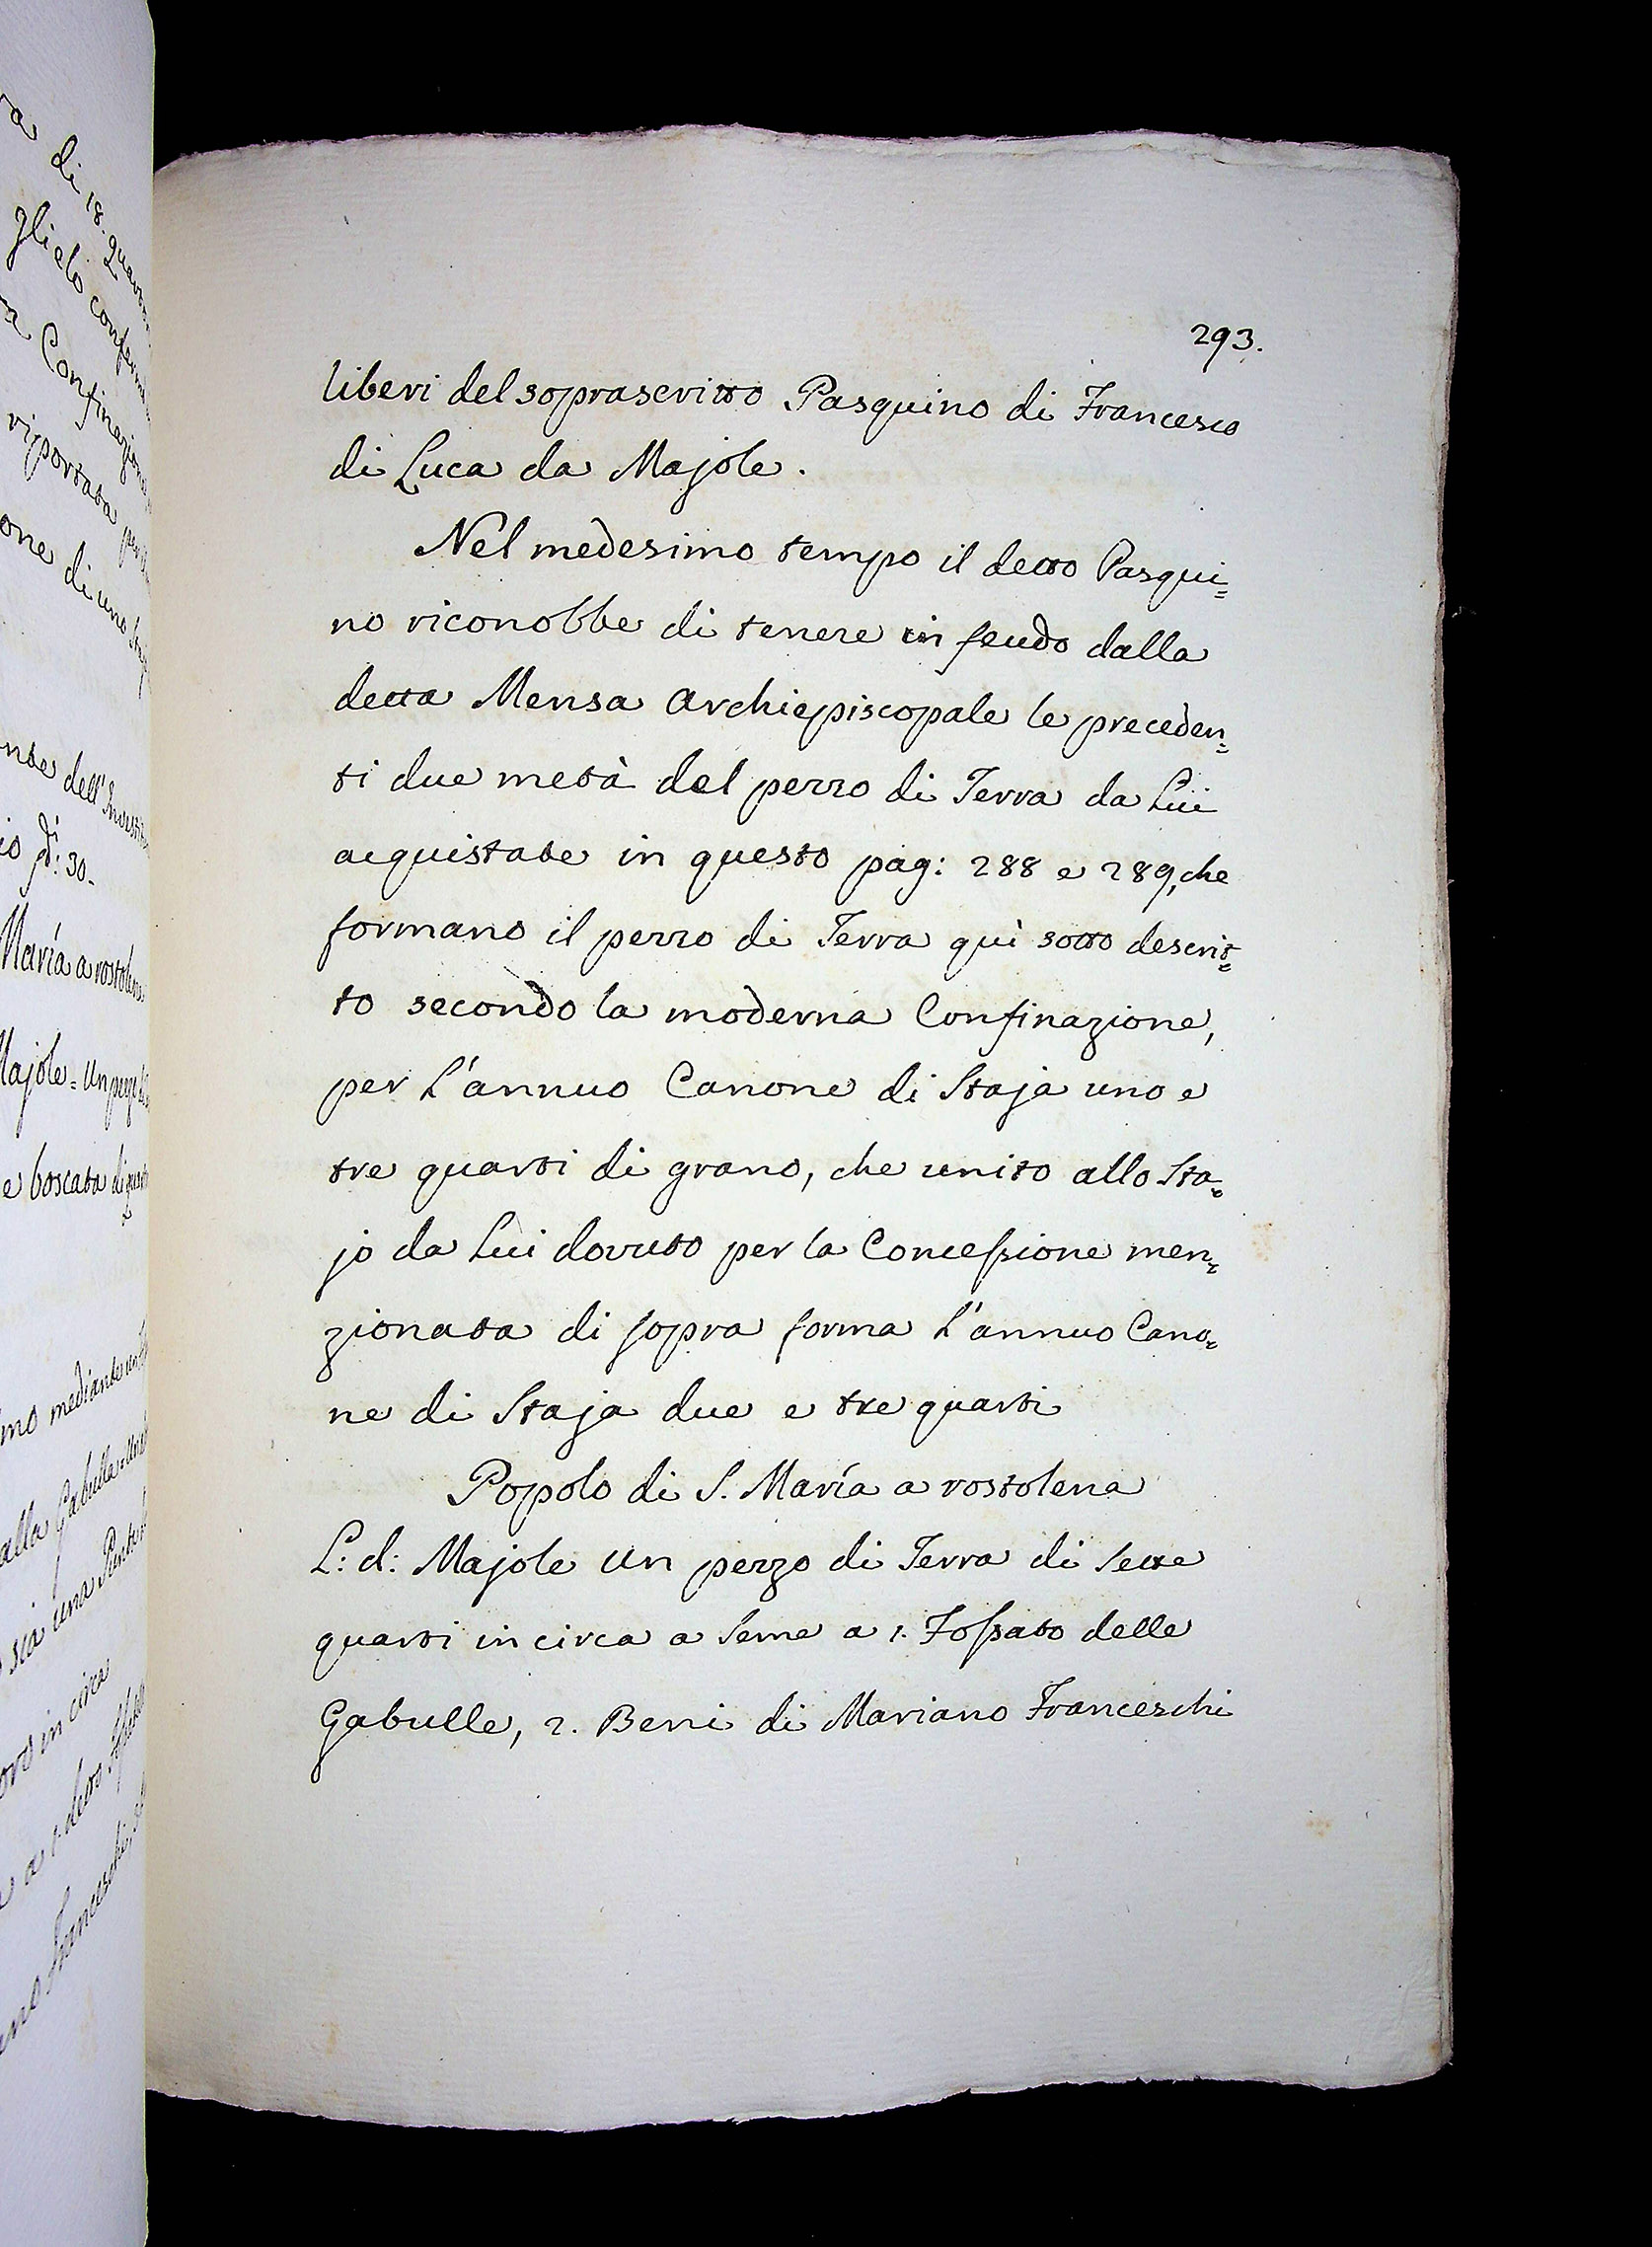 293.
liberi del soprascritto Pasquino di Francesco
di Luca da Majole.
Nel medesimo tempo il detto Pasqui=
no riconobbe di tenere in feudo dalla
detta Mensa Archiepiscopale le preceden=
ti due metà del pezzo di Terra da Lui
acquistate in questo pag: 288 e 289, che
formano il pezzo di Terra quì sotto descrit=
to secondo la moderna Confinazione,
per L'annuo Canone di Staja uno e
tre quarti di grano, che unito allo Sta=
jo da Lui dovuto per la Concessione men=
zionata di sopra forma L'annuo Cano=
ne di Staja due e tre quarti
Popolo di S. María a rostolena
L: d: Majole un pezzo di Terra di Sette
quarti in circa a Seme a 1. Fossato delle
Gabulle, 2. Beni di Mariano Franceschi
di 18. 
glielo
Confinazione
riportata
one di uno
dell'
30.
María a rostolena
Majole = Un pezzo di
e boscata di
mo mediante
alla Gabulla
sia una
in circa
a 1. detto
Franceschi